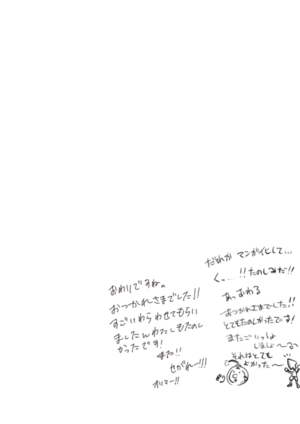 だれか マンガイヒして…
くっ…!!たのしみだ!!
あっおわる
おつかれさまでした!!
とてもたのしかったです!
またごいっしょ
しましょ〜る
それはとても
よかった〜
おわりですね。
おつかれさまでした!!
すごいわらわせてもらい
ましたんわたしもたのし
かったです!
また!!
せがれ〜!!!
オリマー!!